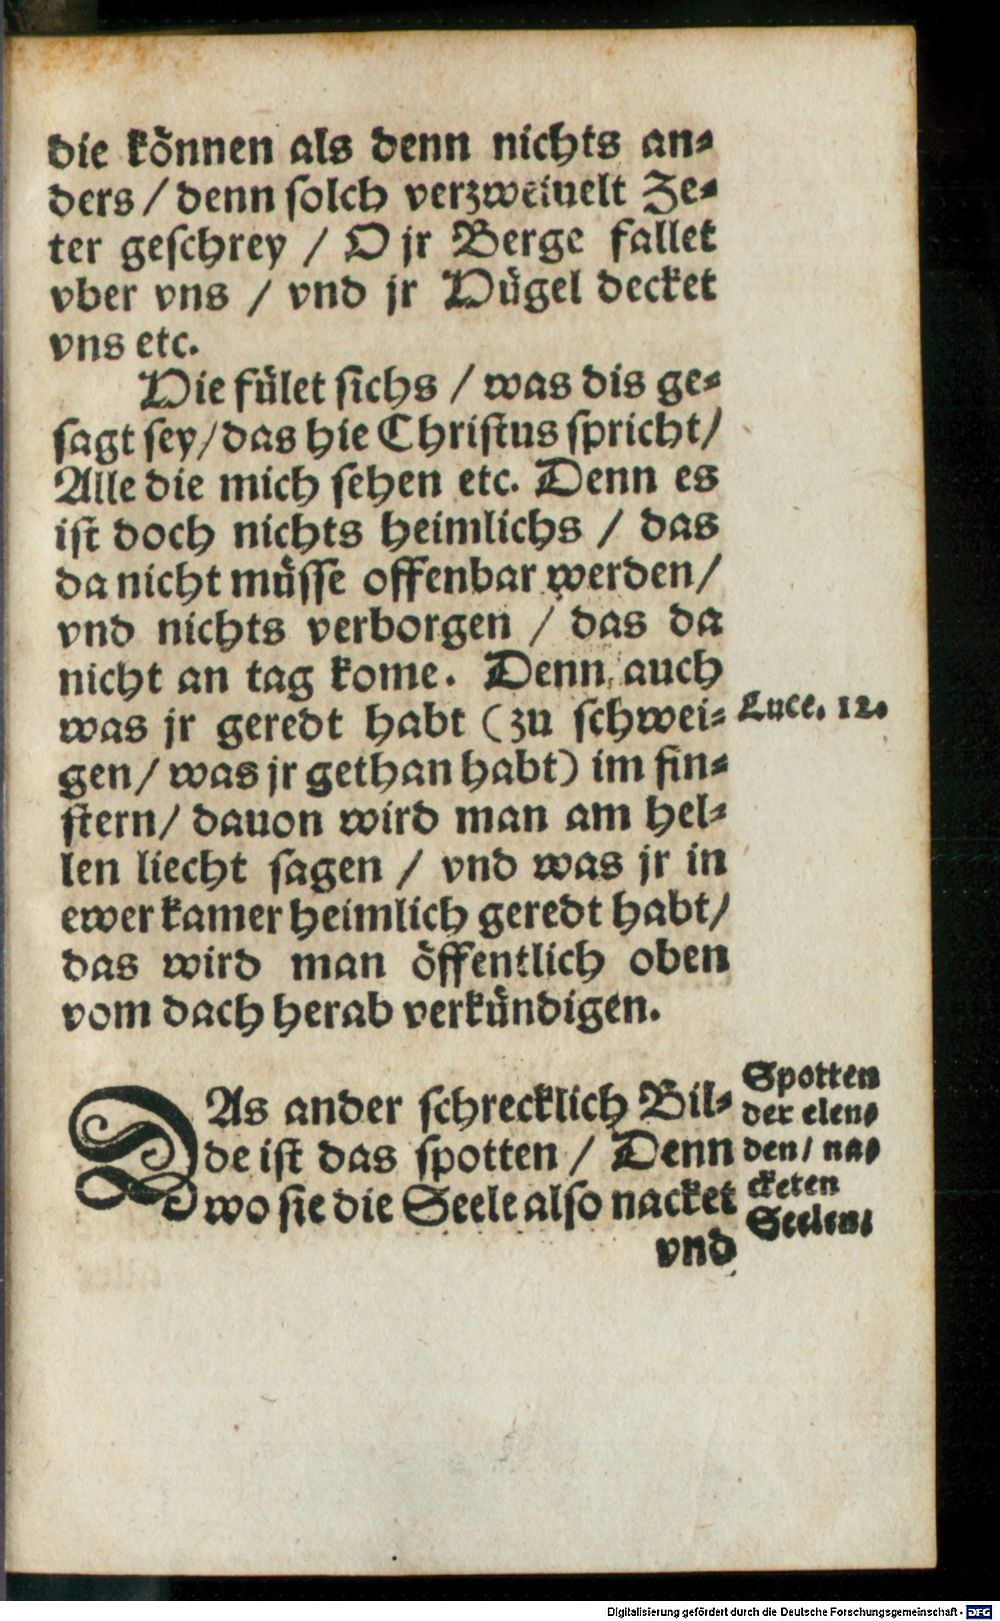 die können als denn nichts an-
ders / denn solch verzweiuelt Ze-
ter geschrey / O jr Berge fallet
vber vns / vnd jr Hügel decket
vns etc.
Hie fület sichs / was dis ge-
sagt sey / das hie Christus spricht /
Alle die mich sehen etc. Denn es
ist doch nichts heimlichs / das
da nicht müsse offenbar werden /
vnd nichts verborgen / das da
nicht an tag kome. Denn auch
was jr geredt habt (zu schwei-
gen / was jr gethan habt) im fin-
stern / dauon wird man am hel-
len liecht sagen / vnd was jr in
ewer kamer heimlich geredt habt /
das wird man öffentlich oben
vom dach herab verkündigen.
Luce. 12.
DAs ander schrecklich Bil-
de ist das spotten / Denn
wo sie die Seele also nacket
vnd
Spotten
der elen-
den / na-
cketen
Seelen.
Digitalisierung gefördert durch die Deutsche Forschungsgemeinschaft - DFG